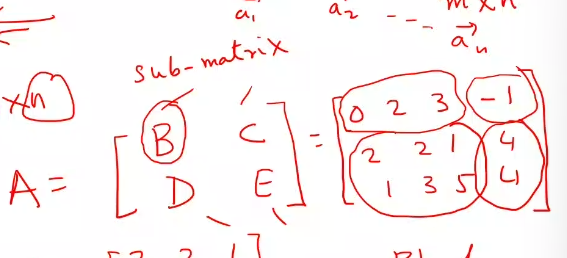 m x n
a₁⃗ a₂⃗ --- aₙ⃗
sub-matrix
xn
A = [ B C ; D E ] = [ 0 2 3 -1 ; 2 2 1 4 ; 1 3 5 4 ]